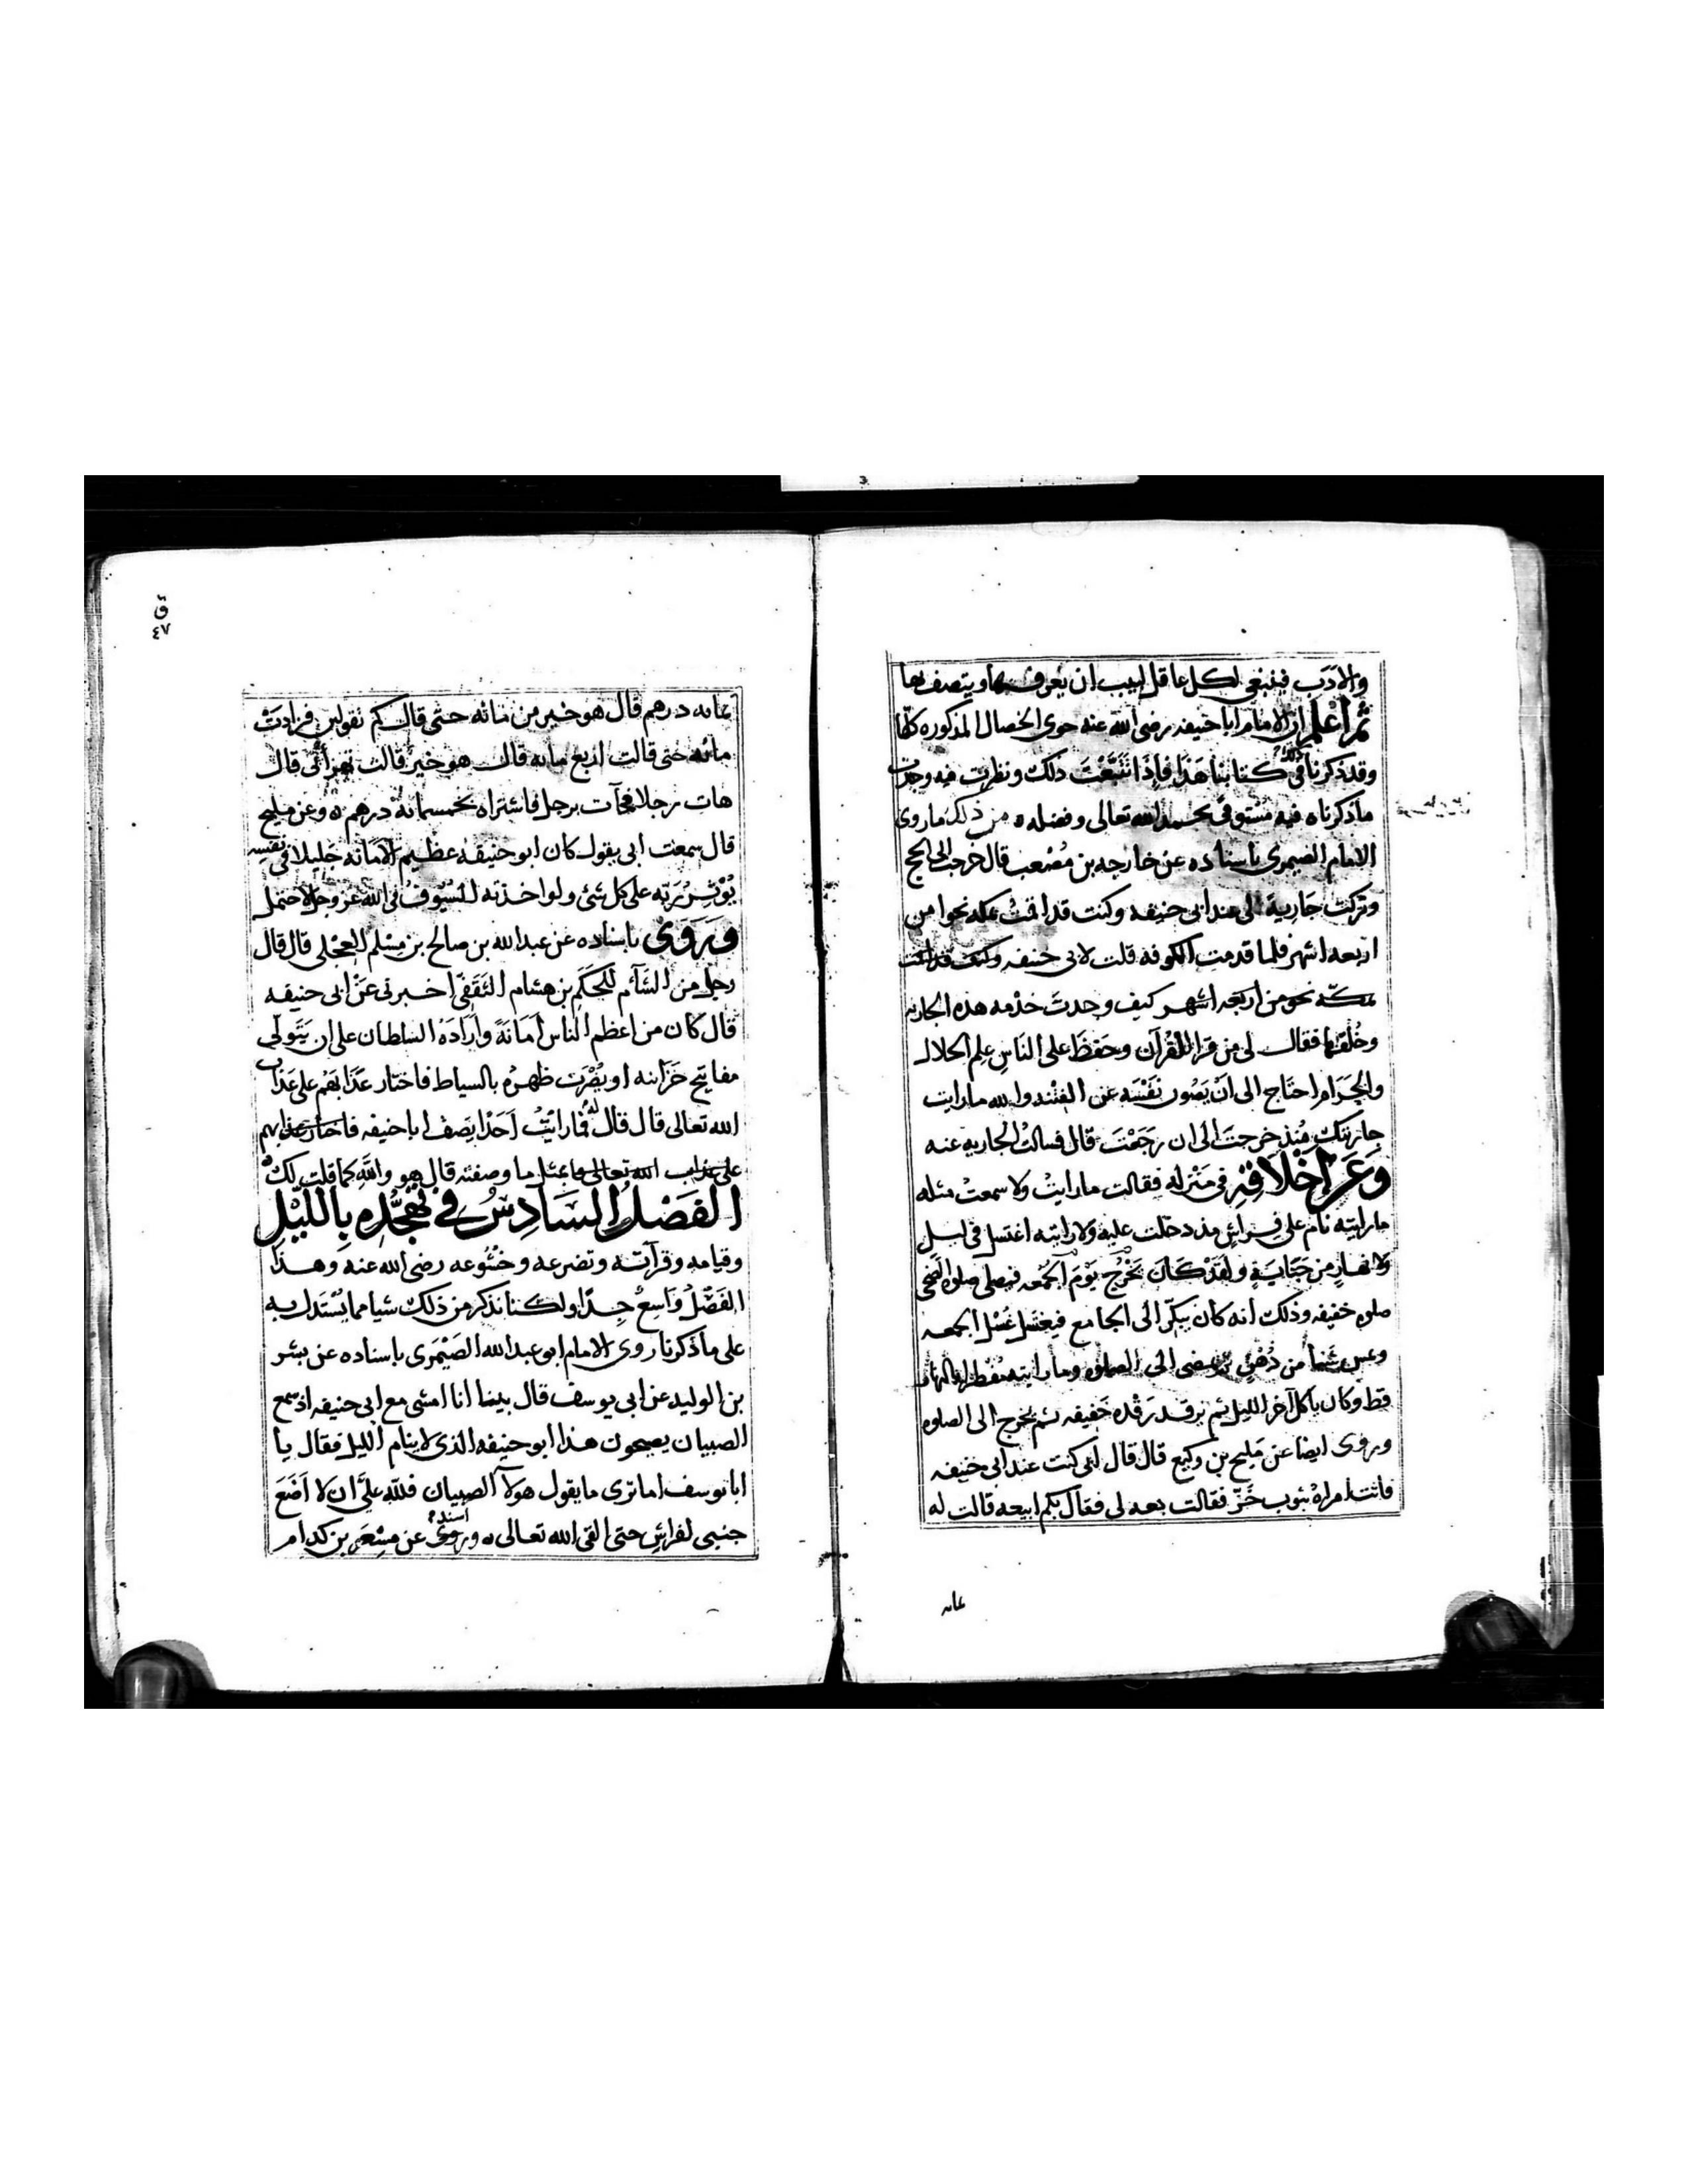 والادب فينبغى لكل عاقل لبيب ان يعرف بها ويتصف بها
ثم اعلم ان الامام ابا حنيفه رضى الله عنه حوى الخصال المذكوره كلها
وقد ذكرنا ذلك فى كتابنا هذا فإذا تتبعت ذلك ونظرت فيه وجدت
ماذكرناه فيه مستوفى بحمد الله تعالى وفضله ه من ذلك ماروى
الامام الصيمرى باسناده عن خارجه بن مصعب قال خرجت الى الحج
وتركت جارية لى عند ابى حنيفه وكنت قد اقمت بمكه نحوا من
اربعه اشهر فلما قدمت الكوفه قلت لابى حنيفه وكنت قد اقمت
بمكّه نحو من اربعه اشهر كيف وجدت خدمه هذه الجاريه
وخُلقها فقال لى من قرا القُرآن وحفظ على الناس علم الحلال
والحَرَام احتاج الى اَنْ يَصُون نَفْسَه عن الفتنه والله ما رايت
جاريتك مُنذ خرجت الى ان رَجَعْتَ قال فسالت الجاريه عنه
وَعَن اَخْلَاقِهِ فى مَنْزله فقالت مارايتُ ولا سمعت مثله
مارايته نام على فِراشٍ مذ دخلت عليه ولا رايته اغتسل فى ليل
ولا نهارٍ من جَنَابَةٍ ولَقَدْ كَانَ يَخْرُجُ يَوْمَ الجُمعه فيصلى صلوه الضحى
صلوه خفيفه وذلك انه كان يبكّر الى الجامع فيغتسل غُسْل الجمعه
ويمس شيئا من دُهْنٍ ثم يمضى الى الصلوه وما رايته مفطرا بالنهار
قط وكان ياكل آخر الليل ثم يرقد رَقْده خَفِيفه ثم يخرج الى الصلوه
وروى ايضا عن مَليح بن وكيع قال قال ابى كنت عند ابى حنيفه
فاتت امراة بثوب خَزّ فقالت بعه لى فقال بكم ابيعه قالت له
بمايه
ق
٤٧
بمايه درهم قال هو خير من مائه حتى قال كم تقولين فزادت
مائه حتى قالت اربع مايه قال هو خير قالت تهزأ بى قال
هات رجلا فجآت برجل فاشتراه بخمسمائة درهم ه وعن مليح
قال سمعت ابى يقول كان ابو حنيفه عظيم الامانه جليلا فى نفسه
يُوْثِر رَبّه على كل شئ ولو اخذته السُيوف فى الله عز وجل لاحتمل
وَرَوَى باسناده عن عبد الله بن صالح بن مِسْلم العجلى قال قال
رجل من الشآم للحَكَم بن هشام الثَقَفىّ اخبرنى عَنْ ابى حنيفه
قال كان من اعظم الناس اَمَانَةً وارَادَهُ السلطان على ان يَتَولّى
مفاتيح خَزَائنه او يُضْرَب ظهرُه بالسياط فاختار عَذَابَهم على عَذَاب
الله تعالى قال قال له فما رايتُ اَحَدًا يَصف ابا حنيفه فاختار عذابهم
على عذاب الله تعالى ما بمثل ما وصفته قال هو والله كما قلت لك
الفَصْل السَادِسُ فى تَهَجُّدِهِ بِاللَّيْلِ
وقيامه وقرآته وتضرعه وخشوعه رضى الله عنه وهذا
الفَصْلُ وَاسِعٌ جدّا ولكنا نذكر من ذلك شيا مما يُسْتَدل به
على ماذكرنا روى الامام ابو عبد الله الصَيْمَرى باسناده عن بشر
بن الوليد عن ابى يوسف قال بينما انا امشى مع ابى حنيفه اذ سمع
الصبيان يصيحون هذا ابو حنيفه الذى لا ينام الليل فقال يا
ابا يوسف اما ترى ما يقول هولآ الصبيان فللّه علىَّ ان لا اضَعَ
جنبى لفراشٍ حتى القى الله تعالى ه وروى اسنده عن مِسْعَر بن كدام